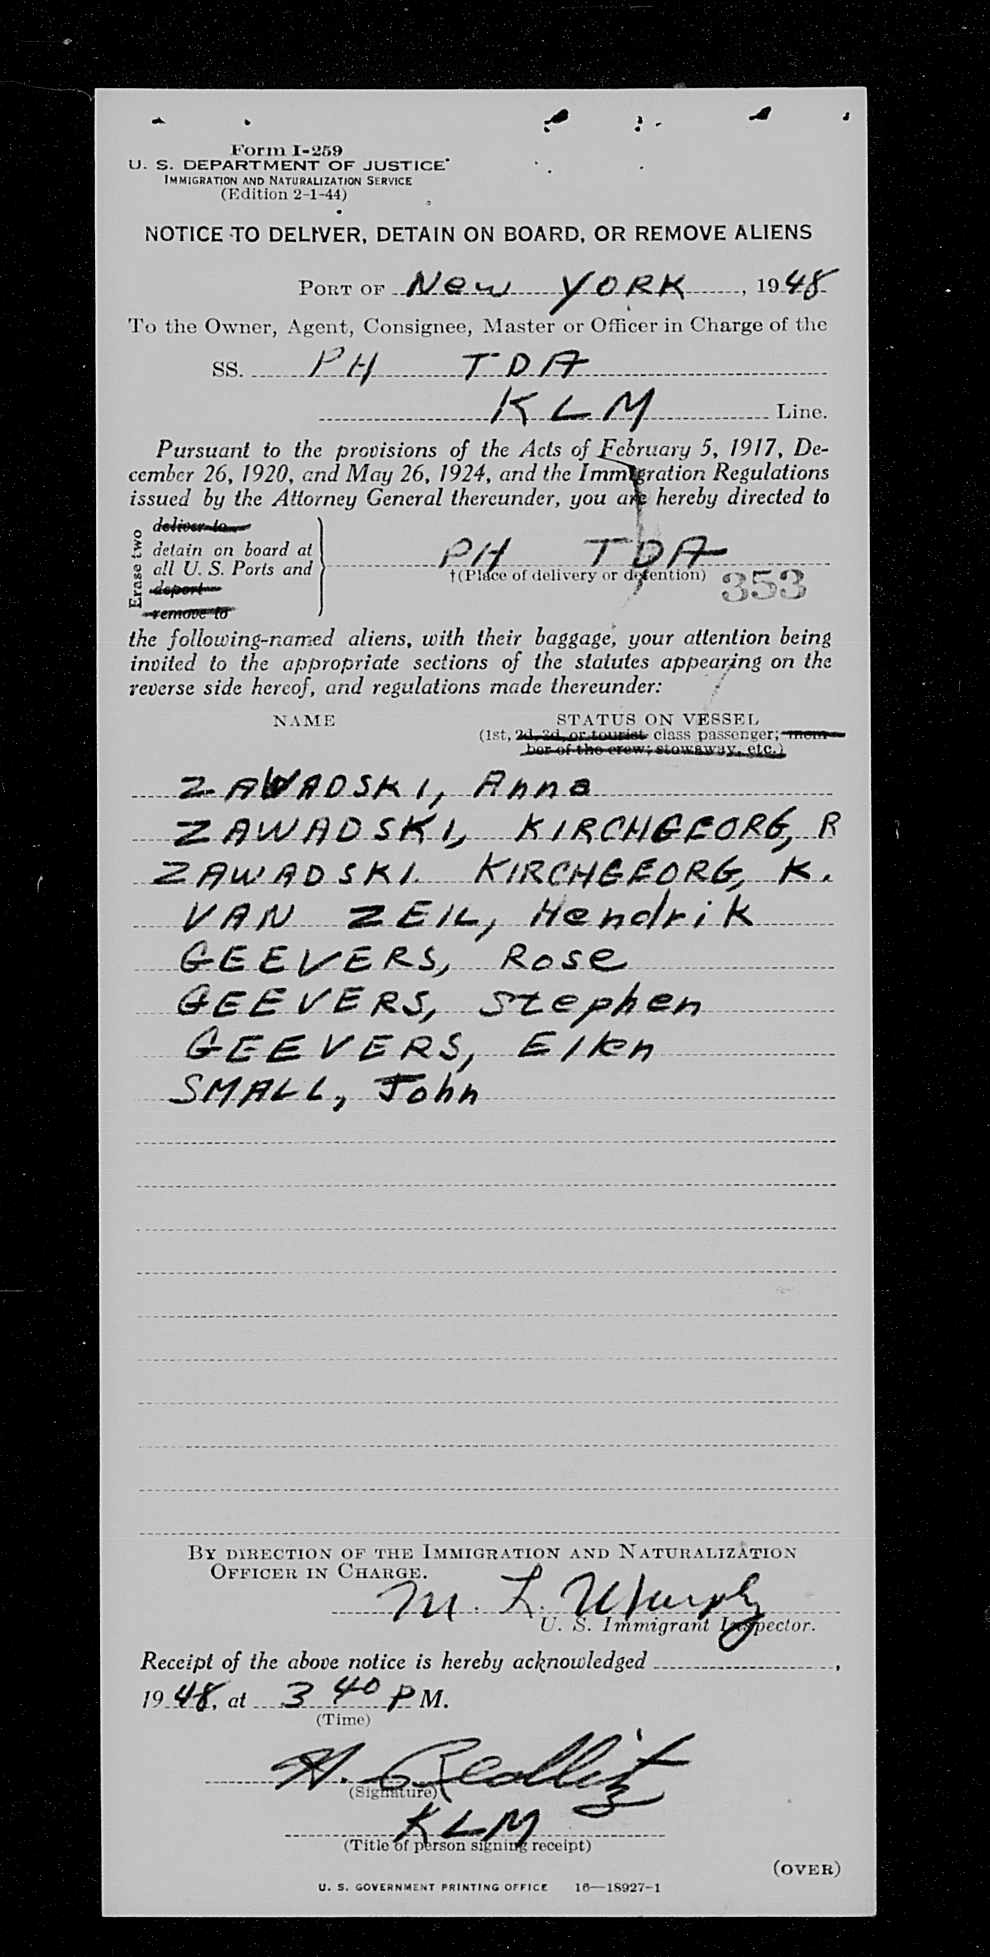 Form I-259
U. S. DEPARTMENT OF JUSTICE
IMMIGRATION AND NATURALIZATION SERVICE
(Edition 2-1-44)
NOTICE TO DELIVER, DETAIN ON BOARD, OR REMOVE ALIENS
PORT OF New YORK, 1948
To the Owner, Agent, Consignee, Master or Officer in Charge of the
SS. PH TDA
KLM Line.
Pursuant to the provisions of the Acts of February 5, 1917, De-
cember 26, 1920, and May 26, 1924, and the Immigration Regulations
issued by the Attorney General thereunder, you are hereby directed to
Erase two
deliver to
detain on board at
all U. S. Ports and
deport
remove to
PH TDA
†(Place of delivery or detention) 353
the following-named aliens, with their baggage, your attention being
invited to the appropriate sections of the statutes appearing on the
reverse side hereof, and regulations made thereunder:
NAME STATUS ON VESSEL
(1st, 2d, 3d, or tourist class passenger; mem-
ber of the crew; stowaway, etc.)
ZAWADSKI, Anna
ZAWADSKI, KIRCHGEORG, R
ZAWADSKI. KIRCHGEORG, K.
VAN ZEIL, Hendrik
GEEVERS, Rose
GEEVERS, Stephen
GEEVERS, Elken
SMALL, John
BY DIRECTION OF THE IMMIGRATION AND NATURALIZATION
OFFICER IN CHARGE.
M. L. Murphy
U. S. Immigrant Inspector.
Receipt of the above notice is hereby acknowledged ,
1948, at 3 40 P M.
(Time)
H.
(Signature)
KLM
(Title of person signing receipt)
(OVER)
U. S. GOVERNMENT PRINTING OFFICE 16—18927-1